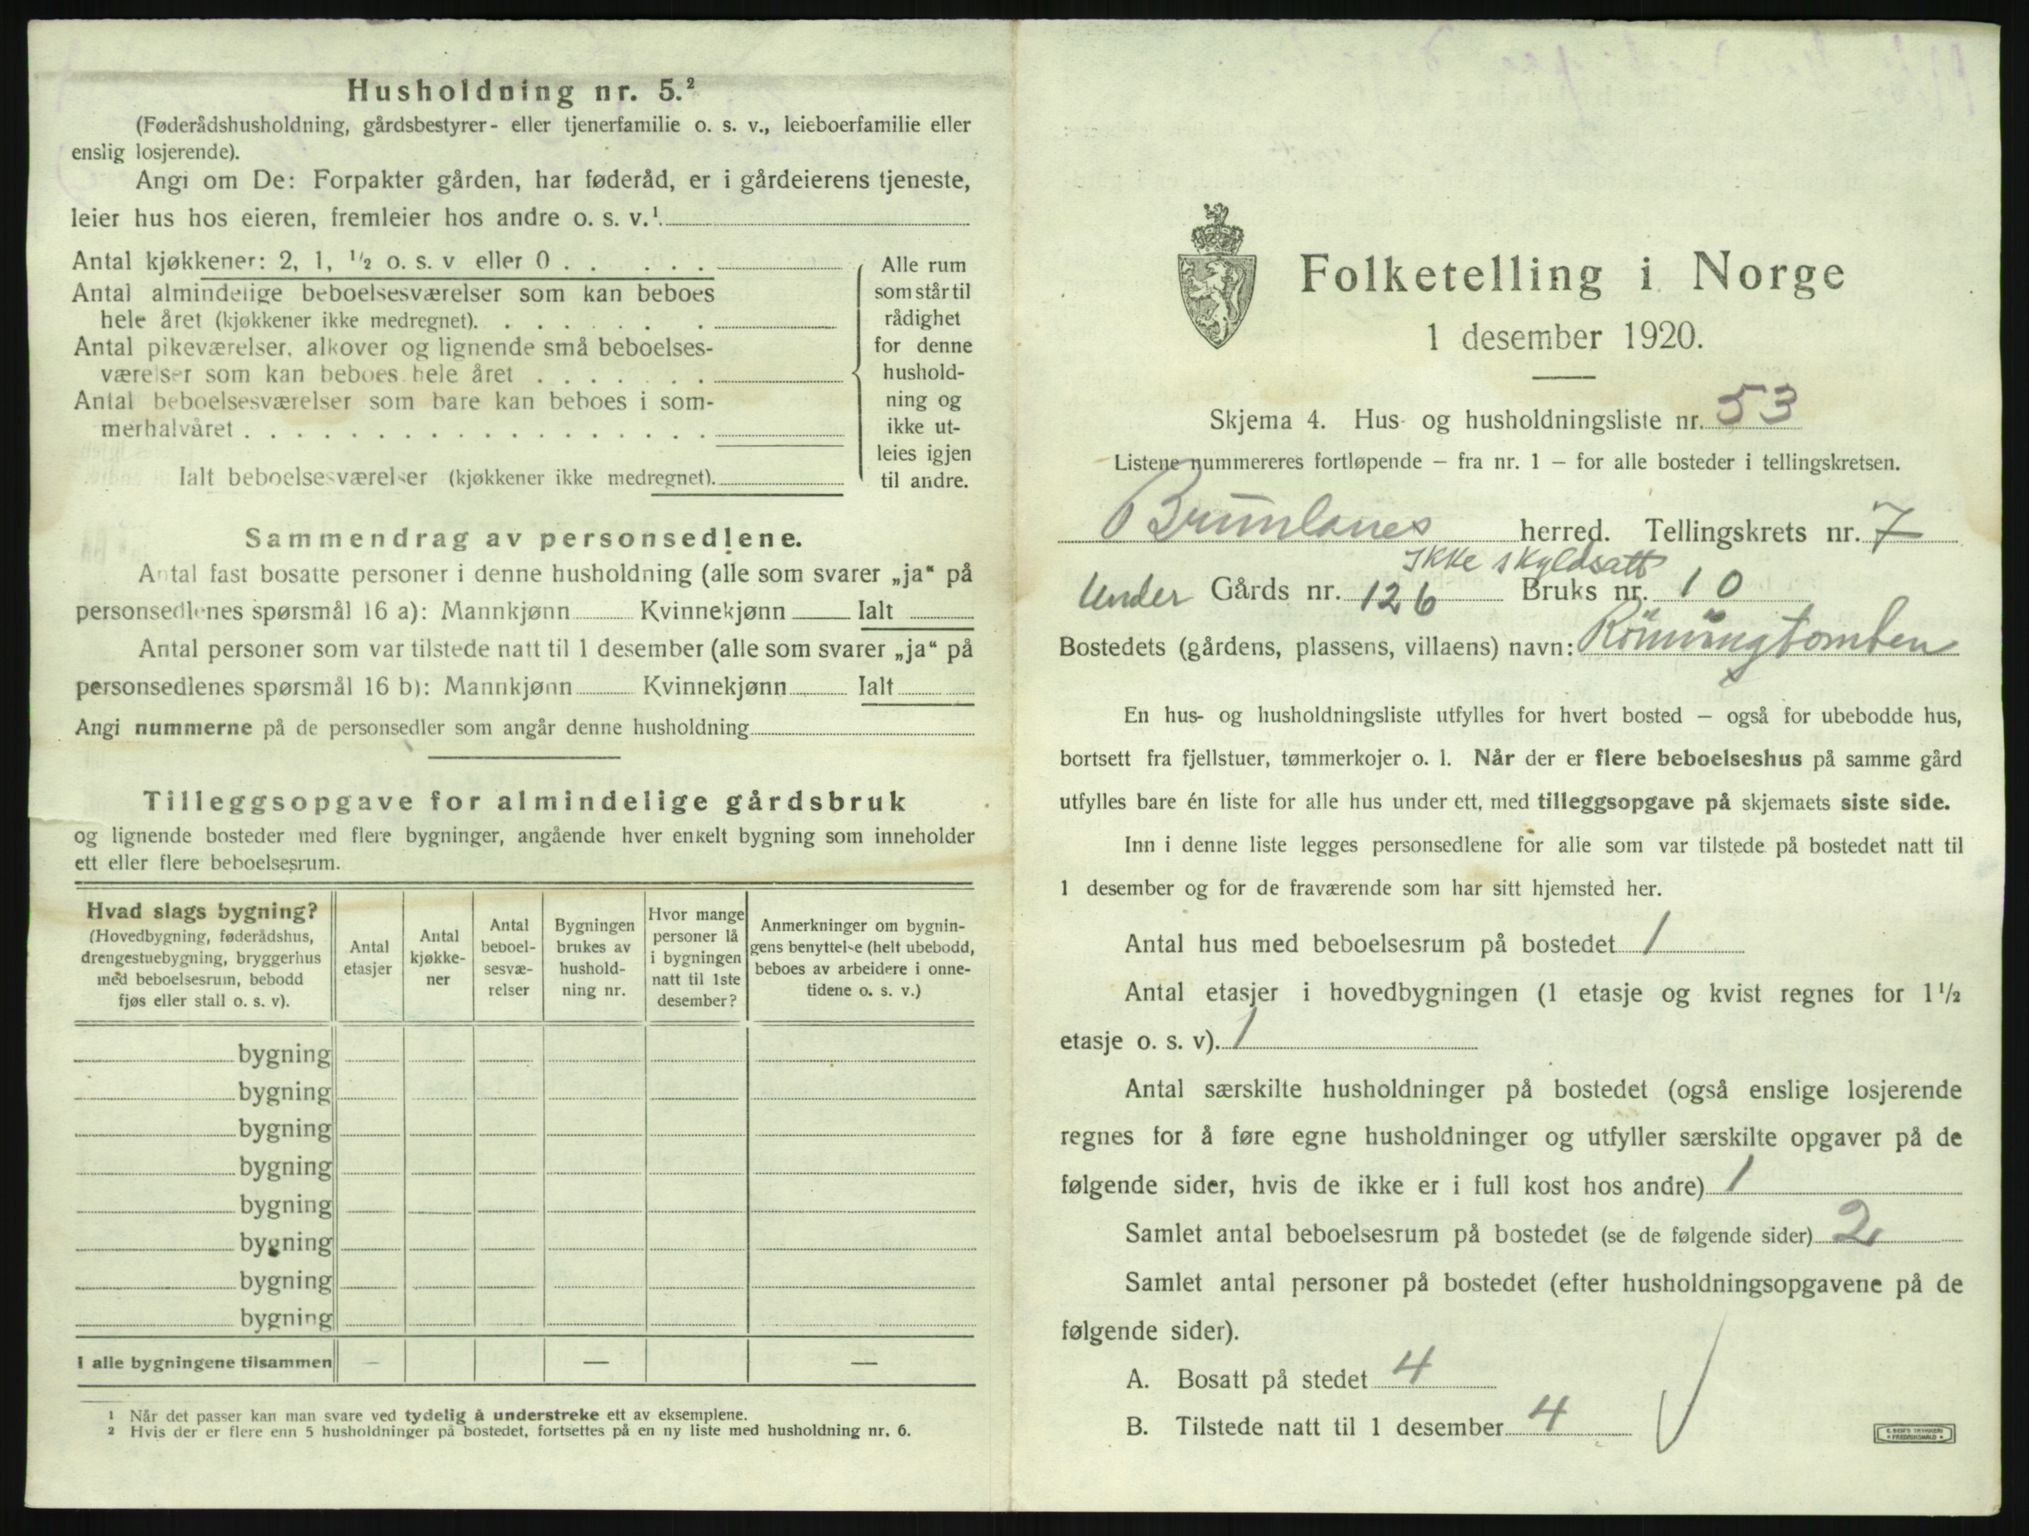 Husholdning nr. 5.²
(Føderådshusholdning, gårdsbestyrer- eller tjenerfamilie o. s. v., leieboerfamilie eller
enslig losjerende).
Angi om De: Forpakter gården, har føderåd, er i gårdeierens tjeneste,
leier hus hos eieren, fremleier hos andre o. s. v.¹
Antal kjøkkener: 2, 1, ½ o. s. v eller 0
Antal almindelige beboelsesværelser som kan beboes
hele året (kjøkkener ikke medregnet).
Antal pikeværelser, alkover og lignende små beboelses-
værelser som kan beboes hele året
Antal beboelsesværelser som bare kan beboes i som-
merhalvåret
Ialt beboelsesværelser (kjøkkener ikke medregnet).
Alle rum
som står til
rådighet
for denne
hushold-
ning og
ikke ut-
leies igjen
til andre.
Sammendrag av personsedlene.
Antal fast bosatte personer i denne husholdning (alle som svarer „ja“ på
personsedlenes spørsmål 16 a): Mannkjønn Kvinnekjønn Ialt
Antal personer som var tilstede natt til 1 desember (alle som svarer „ja“ på
personsedlenes spørsmål 16 b): Mannkjønn Kvinnekjønn Ialt
Angi nummerne på de personsedler som angår denne husholdning
Tilleggsopgave for almindelige gårdsbruk
og lignende bosteder med flere bygninger, angående hver enkelt bygning som inneholder
ett eller flere beboelsesrum.
Hvad slags bygning?
(Hovedbygning, føderådshus,
drengestuebygning, bryggerhus
med beboelsesrum, bebodd
fjøs eller stall o. s. v).
Antal
etasjer
Antal
kjøkke-
ner
Antal
beboel-
sesvæ-
relser
Bygningen
brukes av
hushold-
ning nr.
Hvor mange
personer lå
i bygningen
natt til 1ste
desember?
Anmerkninger om bygnin-
gens benyttelse (helt ubebodd,
beboes av arbeidere i onne-
tidene o. s. v.)
bygning
bygning
bygning
bygning
bygning
bygning
bygning
bygning
I alle bygningene tilsammen — — —
¹ Når det passer kan man svare ved tydelig å understreke ett av eksemplene.
² Hvis der er flere enn 5 husholdninger på bostedet, fortsettes på en ny liste med husholdning nr. 6.
Folketelling i Norge
1 desember 1920.
Skjema 4. Hus- og husholdningsliste nr. 53
Listene nummereres fortløpende – fra nr. 1 – for alle bosteder i tellingskretsen.
Brunlanes herred. Tellingskrets nr. 7
Ikke skyldsatt
Under Gårds nr. 126 Bruks nr. 10
Bostedets (gårdens, plassens, villaens) navn: Rönningtomten
En hus- og husholdningsliste utfylles for hvert bosted – også for ubebodde hus,
bortsett fra fjellstuer, tømmerkojer o. l. Når der er flere beboelseshus på samme gård
utfylles bare én liste for alle hus under ett, med tilleggsopgave på skjemaets siste side.
Inn i denne liste legges personsedlene for alle som var tilstede på bostedet natt til
1 desember og for de fraværende som har sitt hjemsted her.
Antal hus med beboelsesrum på bostedet 1
Antal etasjer i hovedbygningen (1 etasje og kvist regnes for 1½
etasje o. s. v). 1
Antal særskilte husholdninger på bostedet (også enslige losjerende
regnes for å føre egne husholdninger og utfyller særskilte opgaver på de
følgende sider, hvis de ikke er i full kost hos andre) 1
Samlet antal beboelsesrum på bostedet (se de følgende sider) 2
Samlet antal personer på bostedet (efter husholdningsopgavene på de
følgende sider).
A. Bosatt på stedet 4
B. Tilstede natt til 1 desember 4